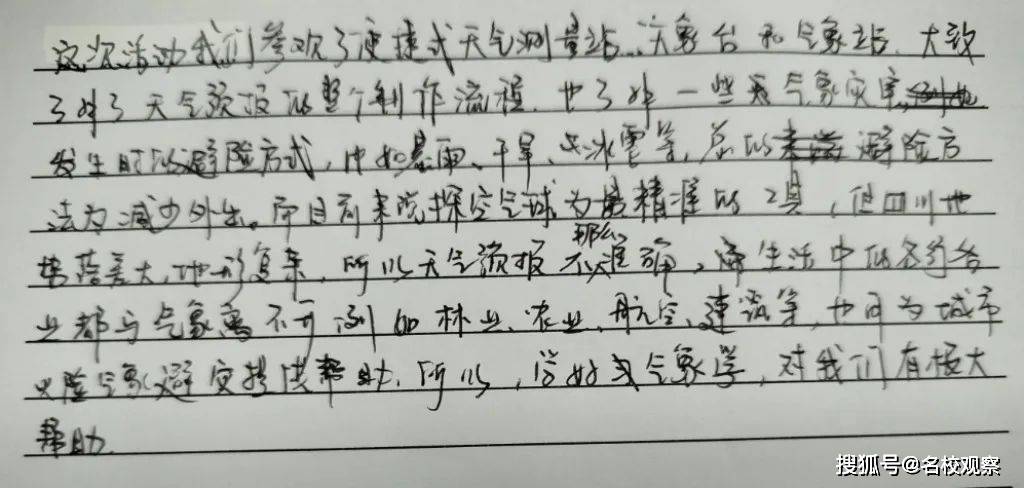 这次活动我们参观了便捷式天气测量站、天象台和气象站,大致
了解了天气预报的整个制作流程,也了解一些天气象灾害
发生时的避险方式,比如暴雨、干旱、冰雹等,总的避险方
法为减少外出。而目前来说探空气球为最精准的工具,但四川地
落差大,地形复杂,所以天气预报不那么准确,生活中的各行各
业都与气象离不开,例如林业、农业、航空、建筑等,也可为城市
火险气象避灾提供帮助,所以,学好气象学,对我们有极大
帮助.
搜狐号@名校观察